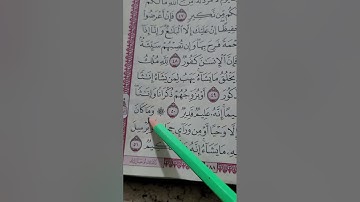 كُم مِّن نَّكِيرٍ ٤٧ فَإِنْ أَعْرَضُوا۟
حَفِيظًا إِنْ عَلَيْكَ إِلَّا ٱلْبَلَٰغُ وَإِنَّآ إِذَآ
حْمَةً فَرِحَ بِهَا وَإِن تُصِبْهُمْ سَيِّئَةٌۢ
فَإِنَّ ٱلْإِنسَٰنَ كَفُورٌ ٤٨ لِّلَّهِ مُلْكُ
يَخْلُقُ مَا يَشَآءُ يَهَبُ لِمَن يَشَآءُ إِنَٰثًا
كُورَ ٤٩ أَوْ يُزَوِّجُهُمْ ذُكْرَانًا وَإِنَٰثًا
يمًا إِنَّهُۥ عَلِيمٌ قَدِيرٌ ٥٠ ۞ وَمَا كَانَ
إِلَّا وَحْيًا أَوْ مِن وَرَآئِ يُرْسِلَ
هِۦ مَا يَشَآءُ إِنَّهُۥ حَكِيمٌ ٥١